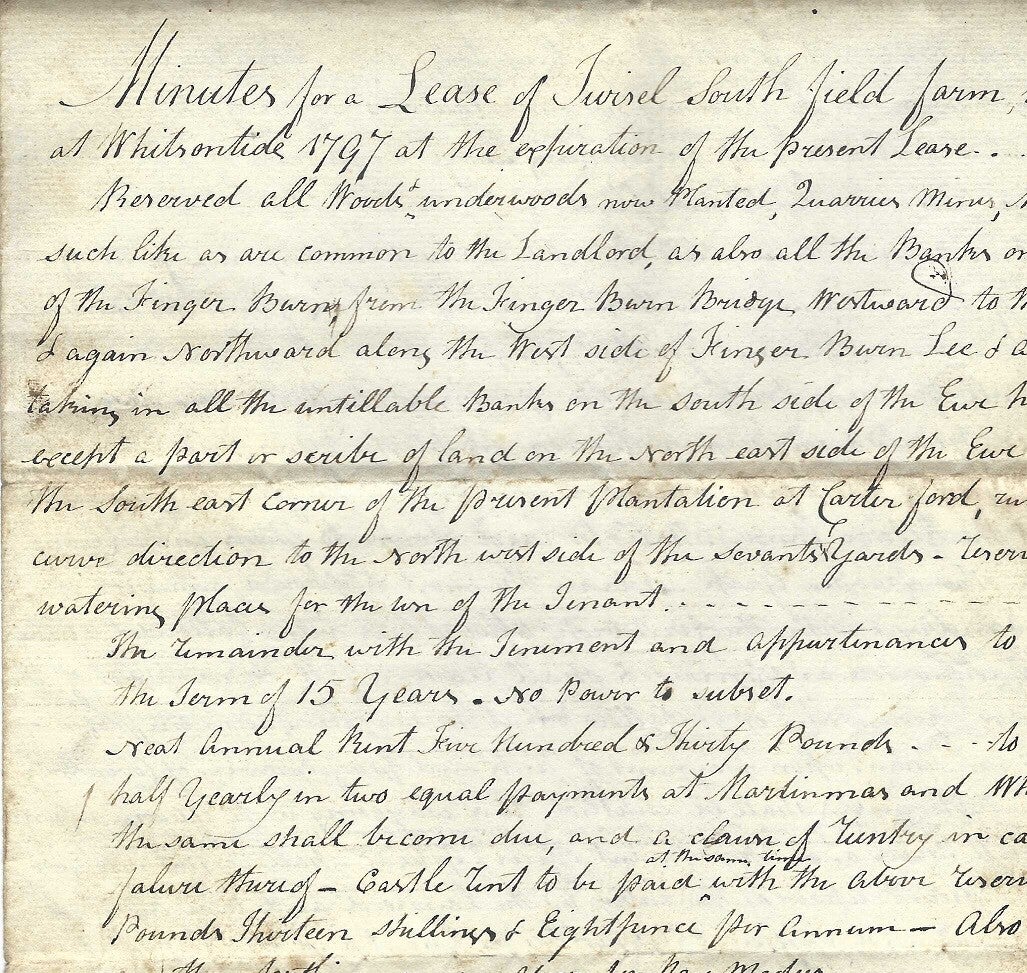 Minutes for a Lease of Twisel South field farm,
at Whitsontide 1797 at the expiration of the present Lease.
Reserved all Woods & underwoods now Planted, Quarries Mines,
such like as are common to the Landlord, as also all the Banks on
of the Finger Burn, from the Finger Burn Bridge Westward to
& again Northward along the West side of Finger Burn Lee &
taking in all the untillable Banks on the south side of the Ewe
except a part or scribe of land on the North east side of the Ewe
the South east corner of the present plantation at Carter ford,
curve direction to the North west side of the Sevants Yards -
watering places for the use of the Tenant.
The remainder with the Tenement and appurtenances to
the Term of 15 Years. No Power to subset.
Neat Annual Rent Five Hundred & Thirty Pounds - to
half Yearly in two equal payments at Martinmas and
the same shall become due, and a clawn of reentry in
at the same time
falure thereof - Castle rent to be paid with the above
Pounds Thirteen shillings & Eightpence per Annum - Also